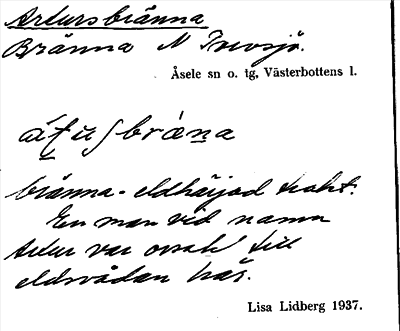 Artursbränna
Bränna N Trevsjö.
Åsele sn o. tg, Västerbottens l.
bränna - eldhärjad trakt.
En man vid namn
Artur var orsak till
eldsvådan här.
Lisa Lidberg 1937.